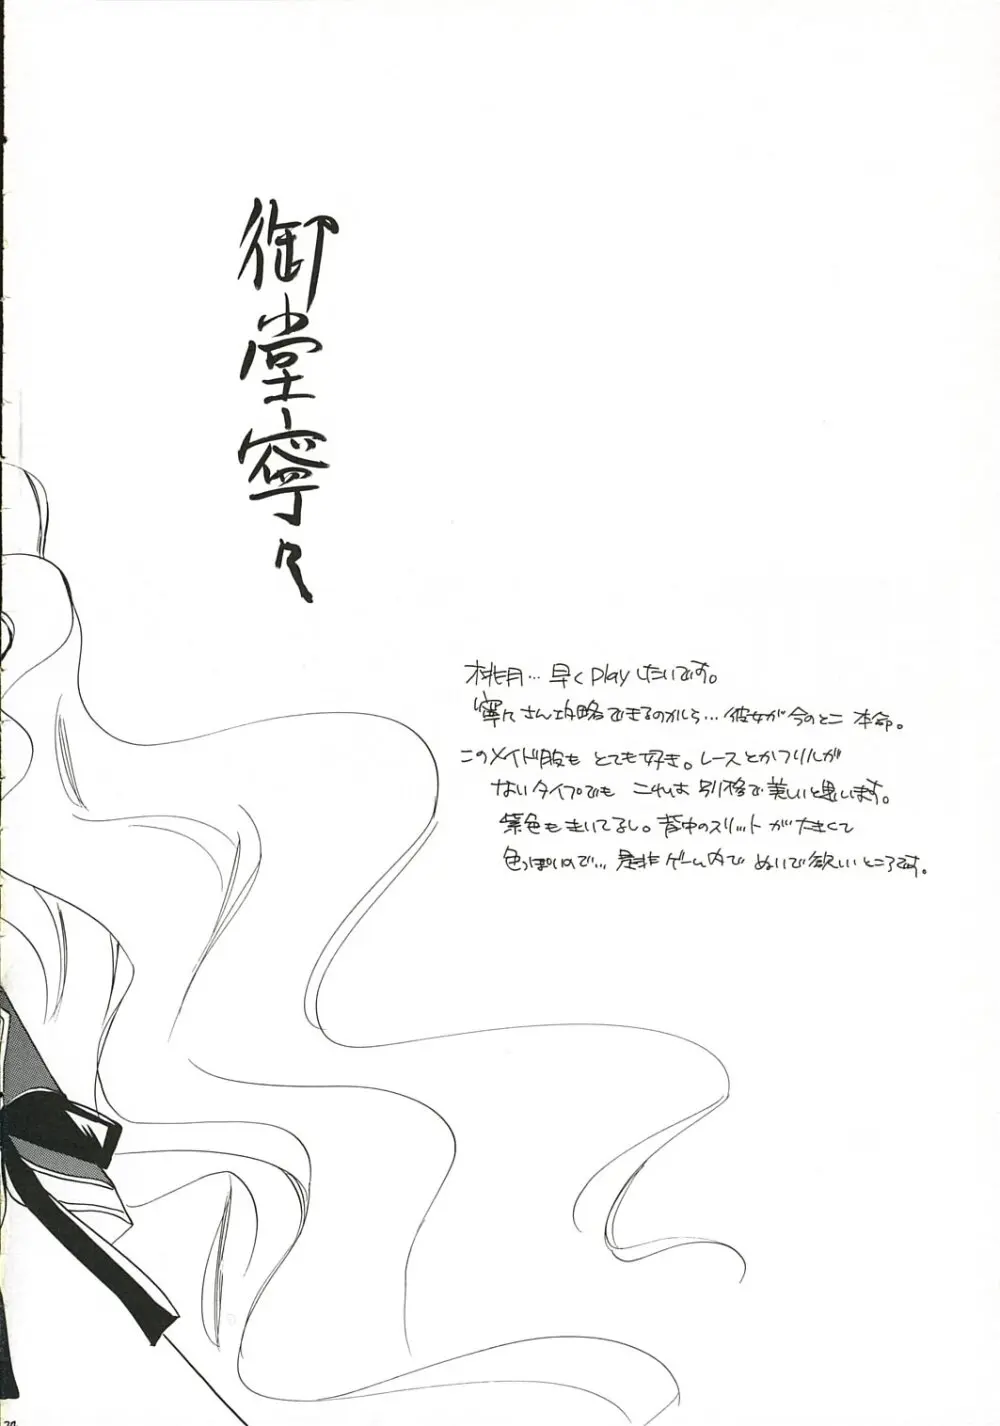 御堂寧々
桃月…早くplayしたいです。
寧々さん攻略できるのかしら…彼女が今のとこ本命。
このメイド服もとても好き。レースとかフリルが
ないタイプでもこれは別格で美しいと思います。
紫色もきいてるし。背中のスリットが大きくて
色っぽいので…是非ゲーム内でぬいで欲しいところです。